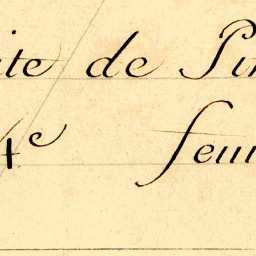 ite de Pin
4e feui